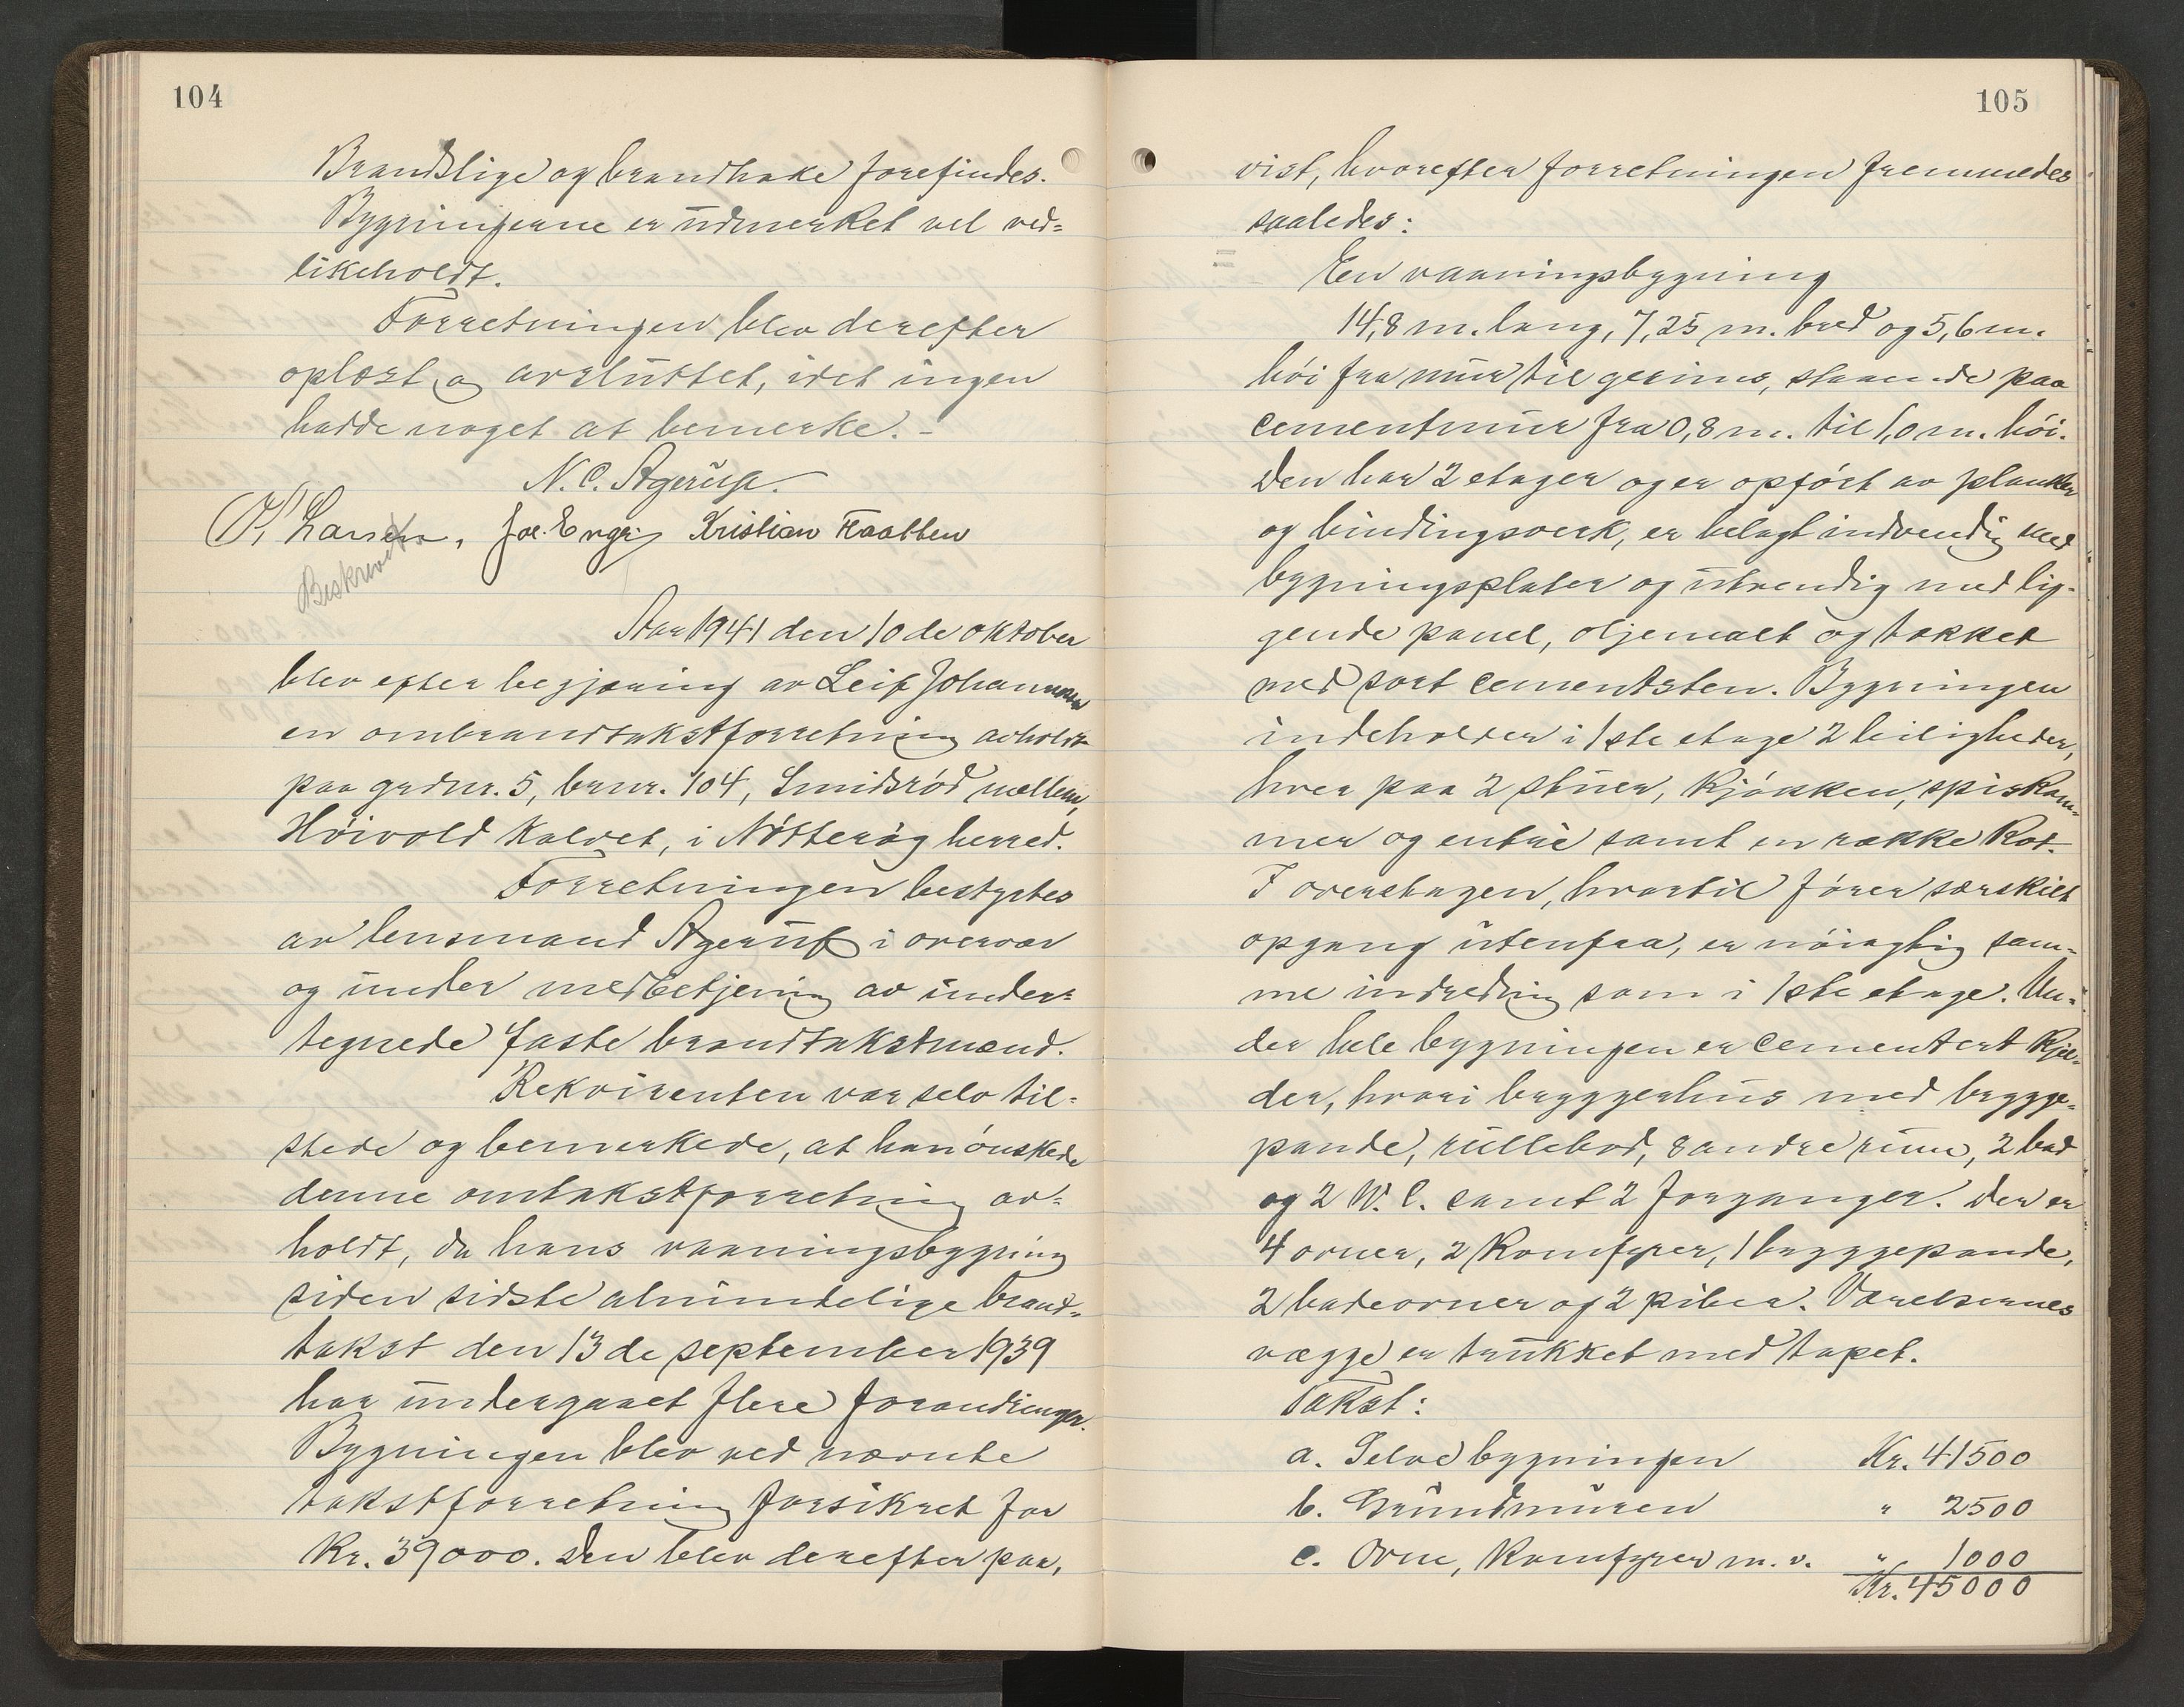 104
Brandstige og brandhake forefindes.
Bygningerne er udmerket vel ved=
likeholdt.
Forretningen blev derefter
oplæst og avsluttet, idet ingen
hadde noget at bemerke. –
N. C. Agerup.
P. Larsen, Joe. Engø Kristian Kaatten
Beskrevet
Aar 1941 den 10de oktober
blev efter begjæring av Leif Johannessen
en ombrandtakstforretning avholdt
paa grdnr. 5, brnr. 104, Smidsrød mellem,
Høivold kaldet, i Nøtterøy herred.
Forretningen bestyrtes
av lensmand Agerup i overvær
og under medbetjening av under=
tegnede faste brandtakstmænd.
Rekvirenten var selv til=
stede og bemerkede, at han ønskede
denne omtakstforretning av=
holdt, da hans vaaningsbygning
siden sidste almindelige brand=
takst den 13de september 1939
har undergaaet flere forandringer.
Bygningen blev ved nævnte
takstforretning forsikret for
Kr. 39000. Den blev derefter paa,
105
vist, hvorefter forretningen fremmedes
saaledes:
En vaaningsbygning
14,8 m. lang, 7,25 m. bred og 5,6 m.
høi fra mur til gesims, staaende paa
cementmur fra 0,8 m. til 1,0 m. høi.
Den har 2 etager og er opført av planker
og bindingsverk, er belagt indvendig med
bygningsplater og utvendig med lig-
gende panel, oljemalt og tækket
med sort cementsten. Bygningen
indeholder i 1ste etage 2 leiligheder,
hver paa 2 stuer, kjøkken, spiskam=
mer og entré samt en række kot.
I overetagen, hvortil fører særskilt
opgang utenfra, er nøiagtig sam=
me indredning som i 1ste etage. Un=
der hele bygningen er cementert kjel=
der, hvori bryggerhus med brygge=
pande, rullebod, 8 andre rum, 2 bad
og 2 W. C. samt 2 forganger. Der er
4 ovner, 2 komfyrer, 1 bryggepande,
2 badeovner og 2 piber. Værelsernes
vægge er trukket med tapet.
Takst:
a. Selve bygningen Kr. 41500
b. Grundmuren " 2500
c. Ovne, komfyrer m. v. " 1000
Kr. 45000